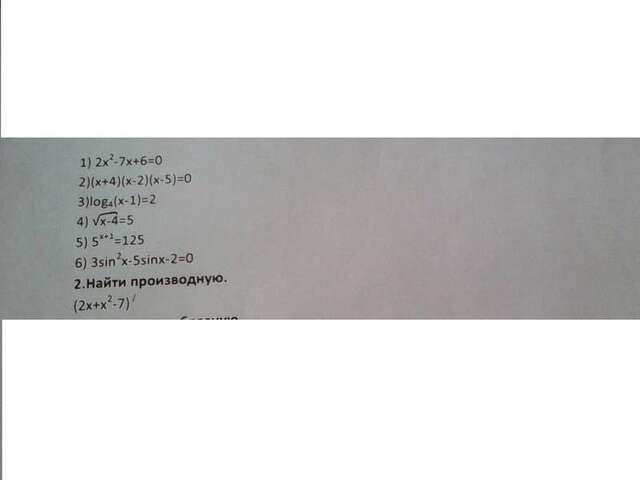 1) 2x²-7x+6=0
2)(x+4)(x-2)(x-5)=0
3)log₄(x-1)=2
4) √x-4=5
5) 5ˣ⁺¹=125
6) 3sin²x-5sinx-2=0
2.Найти производную.
(2x+x²-7)′